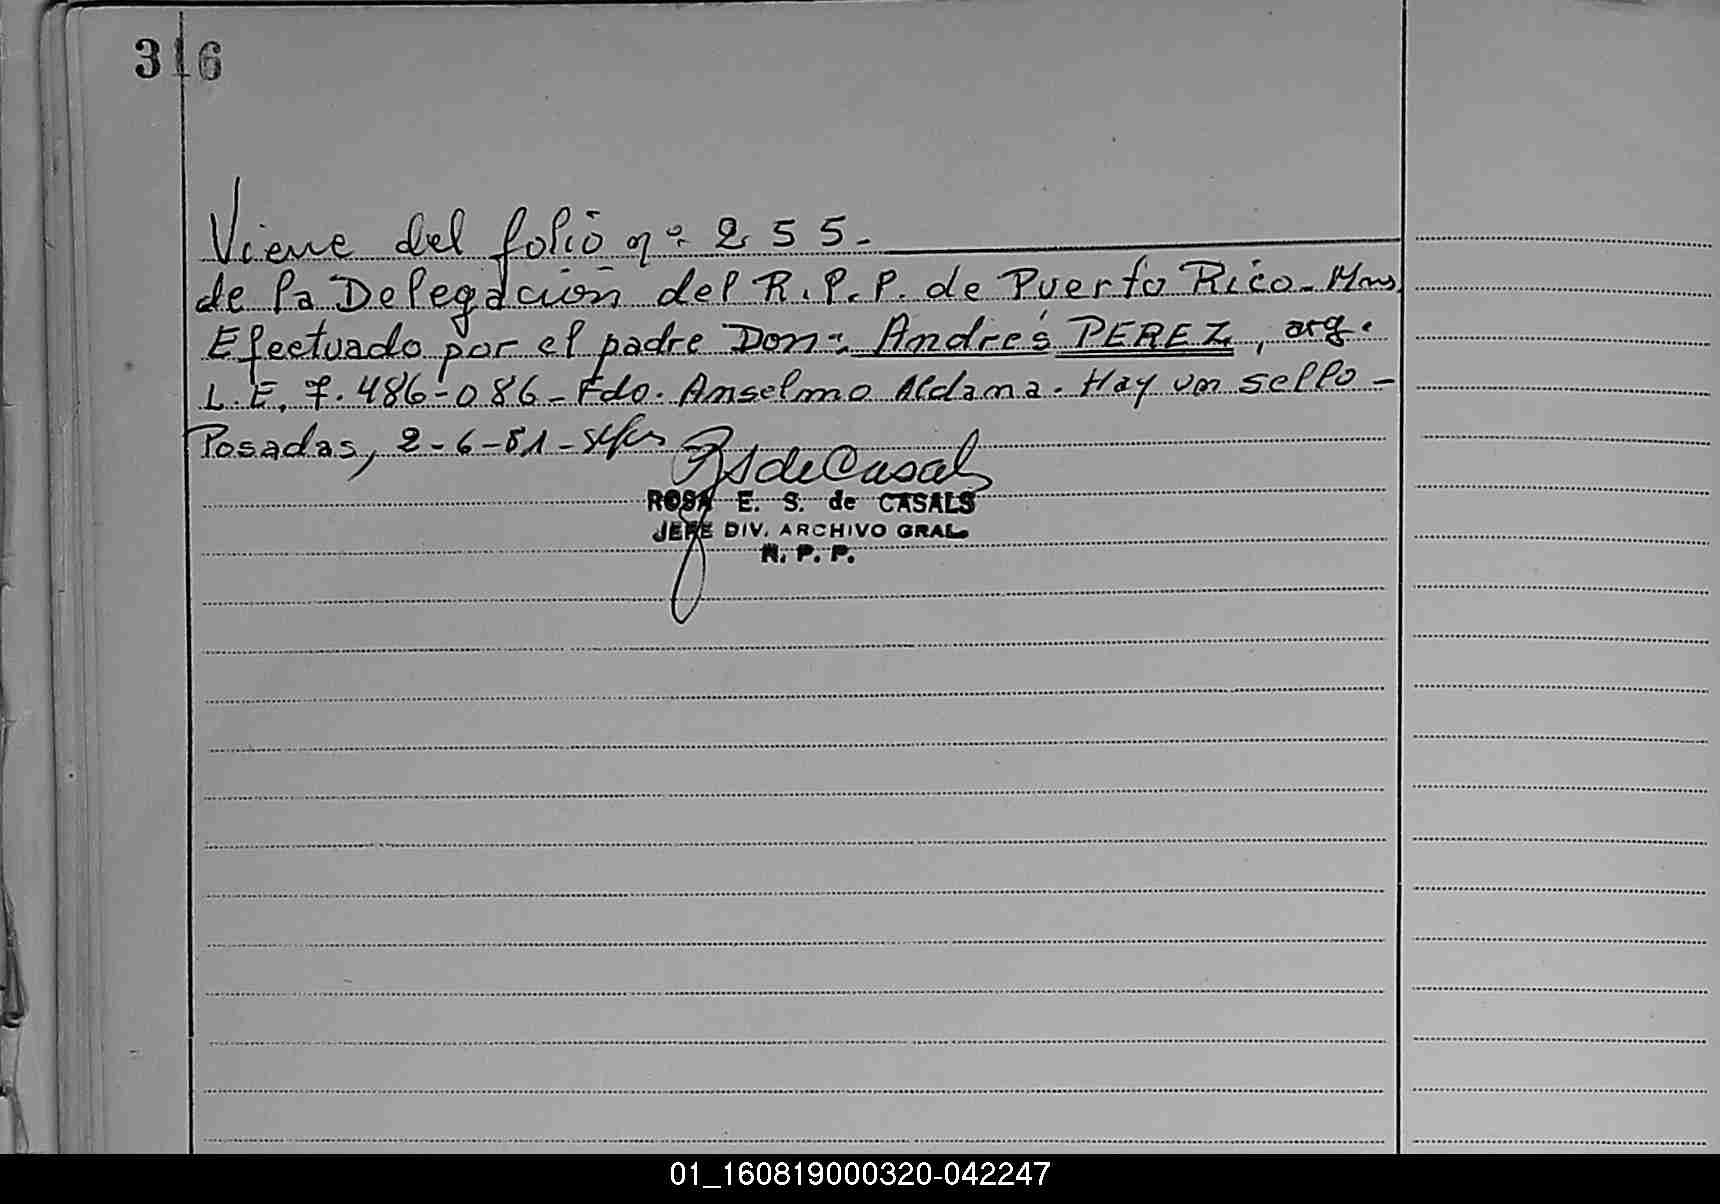 316
Viene del folio nº 255.-
de la Delegación del R.P.P. de Puerto Rico- Mns.
Efectuado por el padre Don: Andrés PEREZ, arg.
L.E. 7.486-086- Fdo. Anselmo Aldama. Hay un sello-
Posadas, 2-6-81-
RSdeCasals
ROSA E. S. de CASALS
JEFE DIV. ARCHIVO GRAL.
R. P. P.
01_160819000320-042247